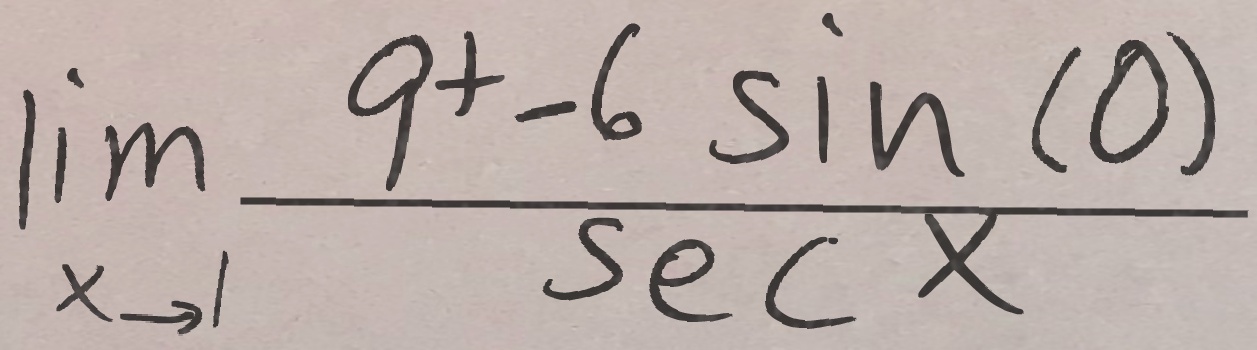 \lim_{x \to 1} \frac{9^{+} - 6 \sin(0)}{\sec x}